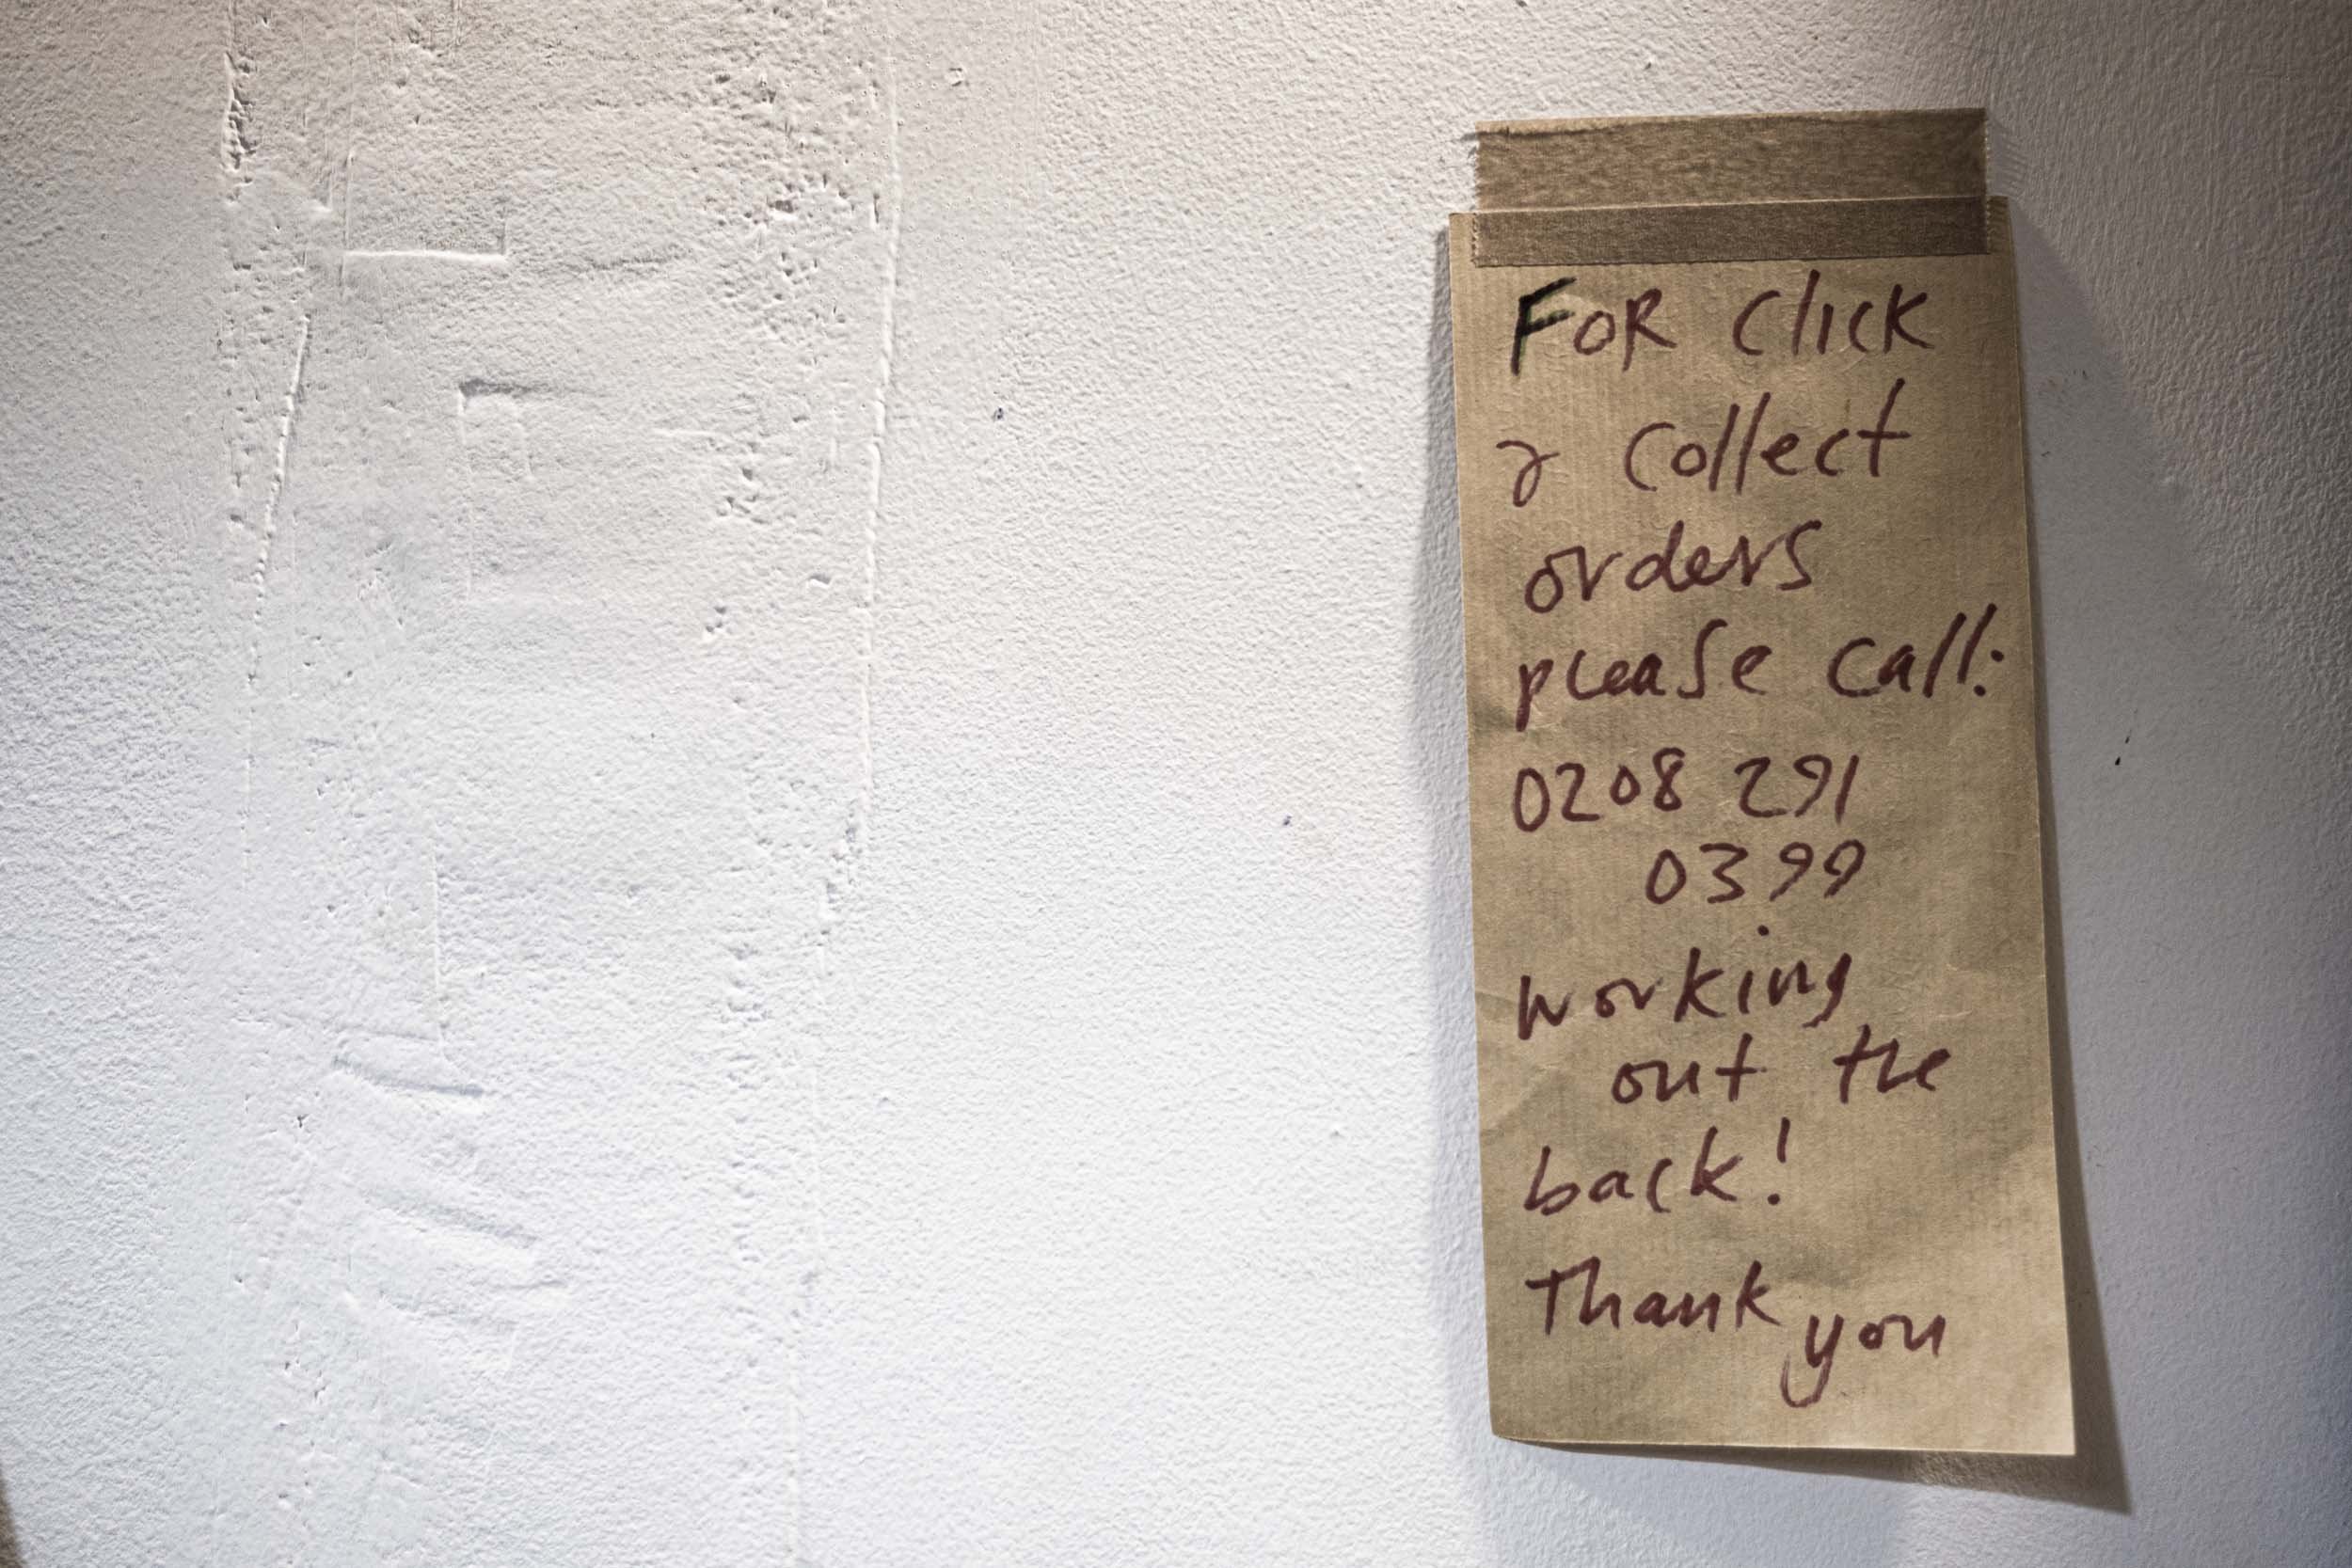 FOR Click
& Collect
orders
please call:
0208 291
0399
working
out the
back!
Thank you